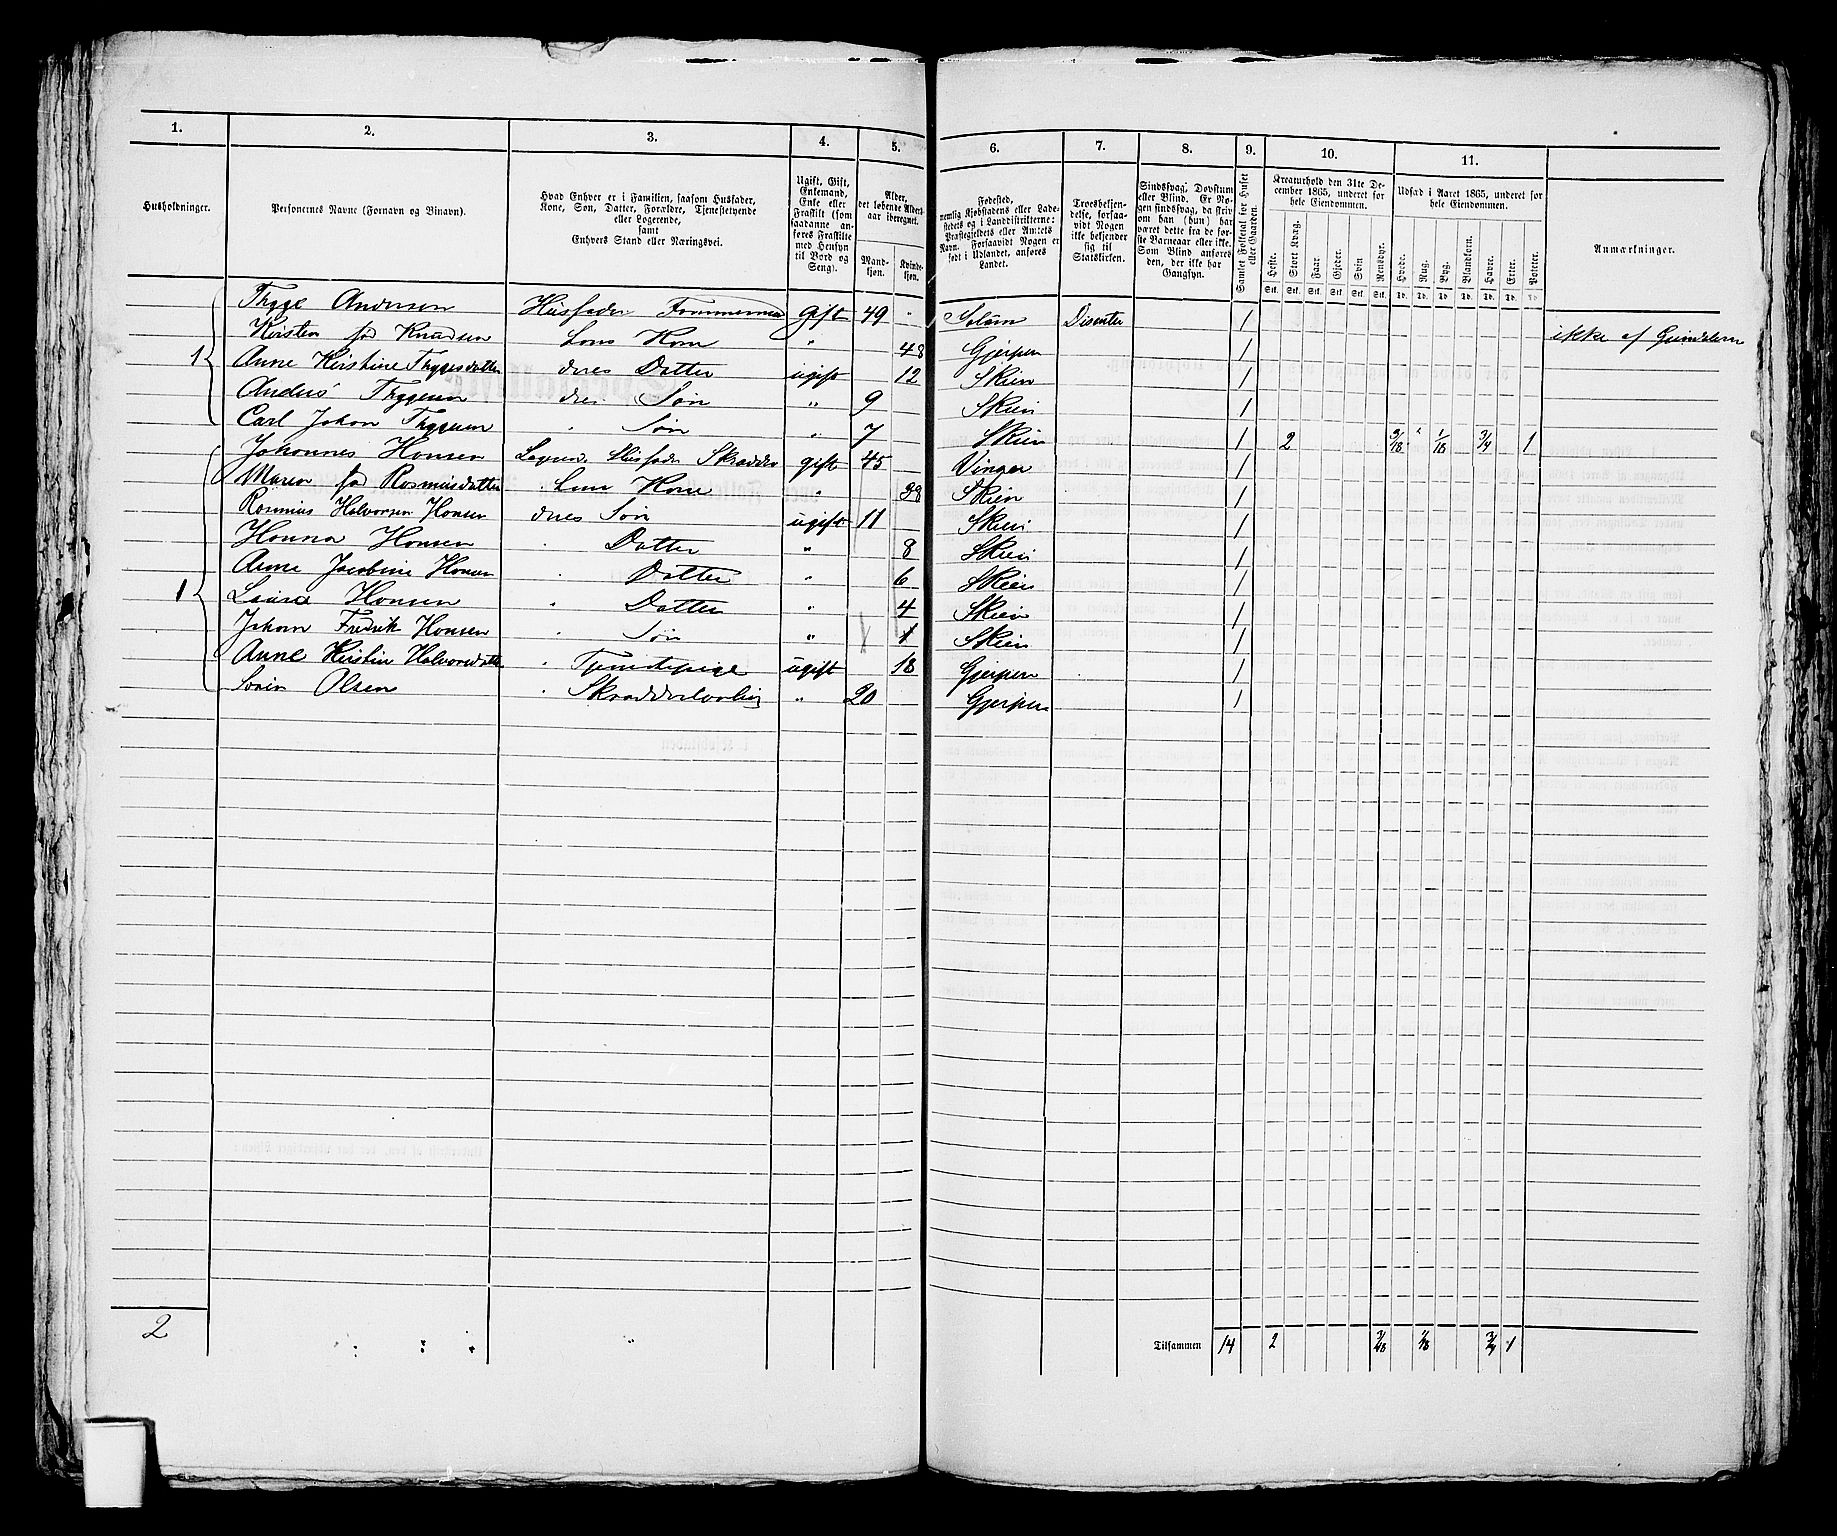 1. 2. 3. 4. 5. 6. 7. 8. 9. 10. 11.
Husholdninger.
Personernes Navne (Fornavn og Binavn).
Hvad Enhver er i Familien, saasom Husfader, Kone, Søn, Datter, Forældre, Tjenestetyende eller Logerende, samt Enhvers Stand eller Næringsvei.
Ugift, Gift, Enkemand, Enke eller Fraskilt (som saadanne anføres Fraskilte med Hensyn til Bord og Seng).
Alder, det løbende Aldersaar iberegnet.
Mandkjøn. Kvindekjøn.
Fødested, nemlig Kjøbstadens eller Ladestedets og i Landdistrikterne: Præstegjeldets eller Amtets Navn. Forsaavidt Nogen er født i Udlandet, anføres Landet.
Troesbekjendelse, forsaavidt Nogen ikke bekjender sig til Statskirken.
Sindssvag, Døvstum eller Blind. Er Nogen sindssvag, da skriv om han (hun) har været dette fra de første Barneaar eller ikke. Som Blind anføres den, der ikke har Gangsyn.
Samlet Folketal for Huset eller Gaarden.
Kreaturhold den 31te December 1865, underet for hele Eiendommen.
Heste. Stort Kvæg. Faar. Gjeder. Svin. Rensdyr.
Udsæd i Aaret 1865, underet for hele Eiendommen.
Hvede. Rug. Byg. Blandkorn. Havre. Erter. Poteter.
Anmærkninger.
Stk. Stk. Stk. Stk. Stk. Stk. Td. Td. Td. Td. Td. Td. Td.
Thyge Andersen Husfader gift 49 " Solum Disenter 1 ikke af
Kirsten fød Knudsen Kone " 48 Gjerpen 1
1 Anne Kirstine Thygesdatter deres Datter ugift 12 Skien 1
Anders Thygesen deres Søn " 9 Skien 1
Carl Johan Thygesen " Søn " 7 Skien 1 2 3/48 " 1/18 3/4 1
Johannes Hansen Husfader Skrædder gift 45 Vinger 1
Maren fød Rasmusdatter " Kone " 38 Skien 1
Rasmus Halvorsen Hansen deres Søn ugift 11 Skien 1
Hanna Hansen " Datter " 8 Skien 1
Anne Jacobine Hansen " Datter " 6 Skien 1
1 Laura Hansen " Datter " 4 Skien 1
Johan Fredrik Hansen " Søn " X 1 Skien 1
Anne Kirstin Halvorsdatter " Tjenestepige ugift 18 Gjerpen 1
Olsen " " 20 Gjerpen 1
2 Tilsammen 14 2 3/48 1/18 3/4 1